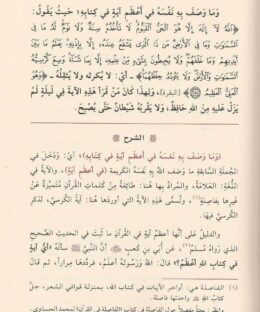 وَمَا وَصَفَ بِهِ نَفْسَهُ فِي أَعْظَمِ آيَةٍ فِي كِتَابِهِ؛ حَيْثُ يَقُولُ:
﴿اللَّهُ لَا إِلَهَ إِلَّا هُوَ الْحَيُّ الْقَيُّومُ لَا تَأْخُذُهُ سِنَةٌ وَلَا نَوْمٌ لَهُ مَا فِي
السَّمَاوَاتِ وَمَا فِي الْأَرْضِ مَنْ ذَا الَّذِي يَشْفَعُ عِنْدَهُ إِلَّا بِإِذْنِهِ يَعْلَمُ مَا بَيْنَ
أَيْدِيهِمْ وَمَا خَلْفَهُمْ وَلَا يُحِيطُونَ بِشَيْءٍ مِنْ عِلْمِهِ إِلَّا بِمَا شَاءَ وَسِعَ كُرْسِيُّهُ
السَّمَاوَاتِ وَالْأَرْضَ وَلَا يَئُودُهُ حِفْظُهُمَا﴾ـ أَيْ: لَا يُكْرِثُهُ وَلَا يُثْقِلُهُ ـ ﴿وَهُوَ
الْعَلِيُّ الْعَظِيمُ﴾ [البقرة]، وَلِهَذَا كَانَ مَنْ قَرَأَ هَذِهِ الْآيَةَ فِي لَيْلَةٍ لَمْ
يَزَلْ عَلَيْهِ مِنَ اللهِ حَافِظٌ، وَلَا يَقْرَبُهُ شَيْطَانٌ حَتَّى يُصْبِحَ.
الشرح
(وَمَا وَصَفَ بِهِ نَفْسَهُ فِي أَعْظَمِ آيَةٍ فِي كِتَابِهِ)؛ أَيْ: وَدَخَلَ فِي
الجُمْلَةِ السَّابِقَةِ مَا وَصَفَ اللهُ بِهِ نَفْسَهُ الكَرِيمَةَ (فِي أَعْظَمِ آيَةٍ)، وَالآيَةُ فِي
اللُّغَةِ: العَلَامَةُ، وَالمُرَادُ بِهَا هُنَا: طَائِفَةٌ مِنْ كَلِمَاتِ القُرْآنِ مُتَمَيِّزَةٌ عَنْ
غَيْرِهَا بِفَاصِلَةٍ(١)، وَتُسَمَّى هَذِهِ الآيَةُ الَّتِي أَوْرَدَهَا هُنَا: آيَةَ الكُرْسِيِّ، لِذِكْرِ
الكُرْسِيِّ فِيهَا.
وَالدَّلِيلُ عَلَى أَنَّهَا أَعْظَمُ آيَةٍ فِي القُرْآنِ مَا ثَبَتَ فِي الحَدِيثِ الصَّحِيحِ
الَّذِي رَوَاهُ مُسْلِمٌ(٢) عَنْ أُبَيِّ بْنِ كَعْبٍ أَنَّ النَّبِيَّ ﷺ سَأَلَهُ «أَيُّ آيَةٍ
فِي كِتَابِ اللهِ أَعْظَمُ؟» قَالَ: اللهُ وَرَسُولُهُ أَعْلَمُ، فَرَدَّدَهَا مِرَاراً، ثُمَّ قَالَ
(١) الفاصلة هي: أواخر الآيات في كتاب الله، بمنزلة قوافي الشعر، جل
كتاب الله واحدتها فاصلة.